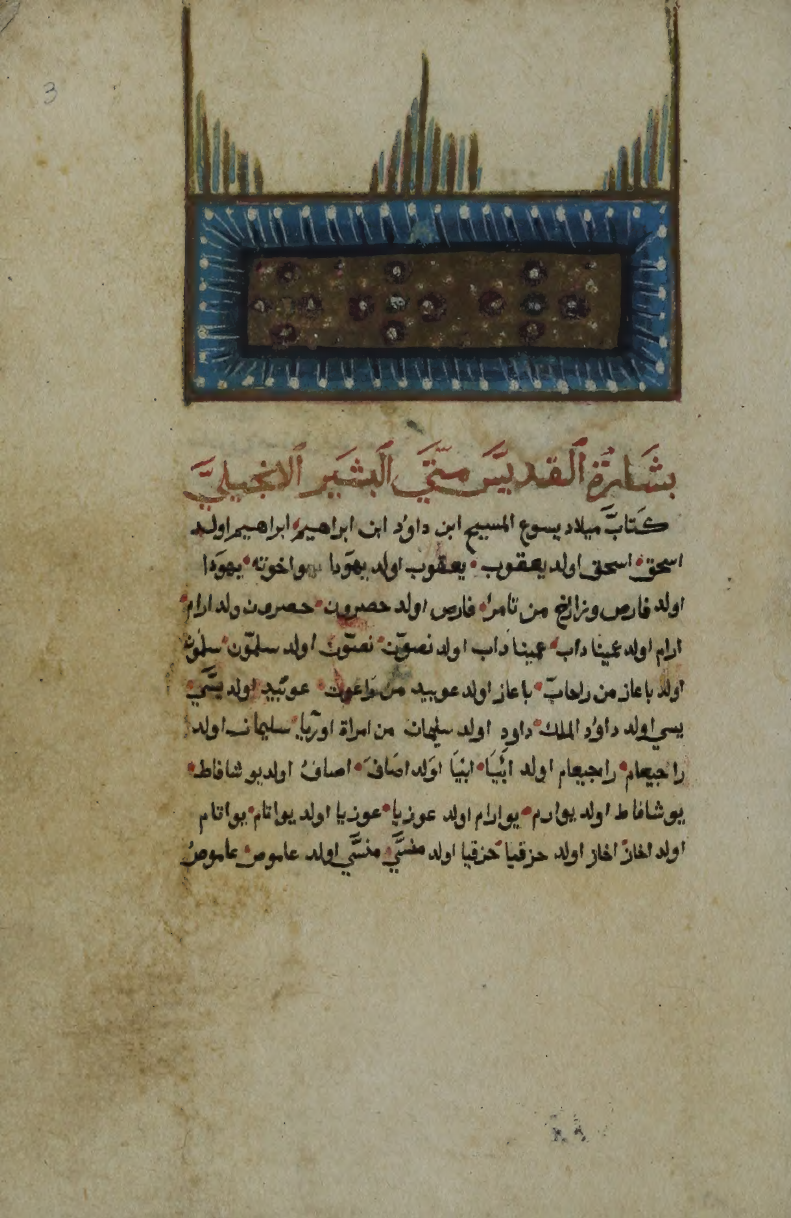 3
بشارة القديس متي البشير الانجيلي
كتاب ميلاد يسوع المسيح ابن داوُد ابن ابراهيم ابراهيم اولد
اسحق اسحق اولد يعقوب يعقوب اولد يهودا واخوته يهودا
اولد فارص وزارح من تامرا فارص اولد حصرون حصرون ولد ارام
ارام اولد عمينا داب عمينا داب اولد نصون نصون اولد سلمون سلمون
اولد باعاز من راحاب باعاز اولد عوبيد من راعوث عوبيد اولد يسي
يسي اولد داوُد الملك داود اولد سليمان من امراة اوريا سليمان اولد
راجيعام راجيعام اولد ابيا ابيا اولد اصاف اصاف اولد يوشافاط
يوشافاط اولد يوارم يوارام اولد عوزيا عوزيا اولد يواتام يواتام
اولد اخاز اخاز اولد حزقيا حزقيا اولد منسي منسي اولد عاموص عاموص